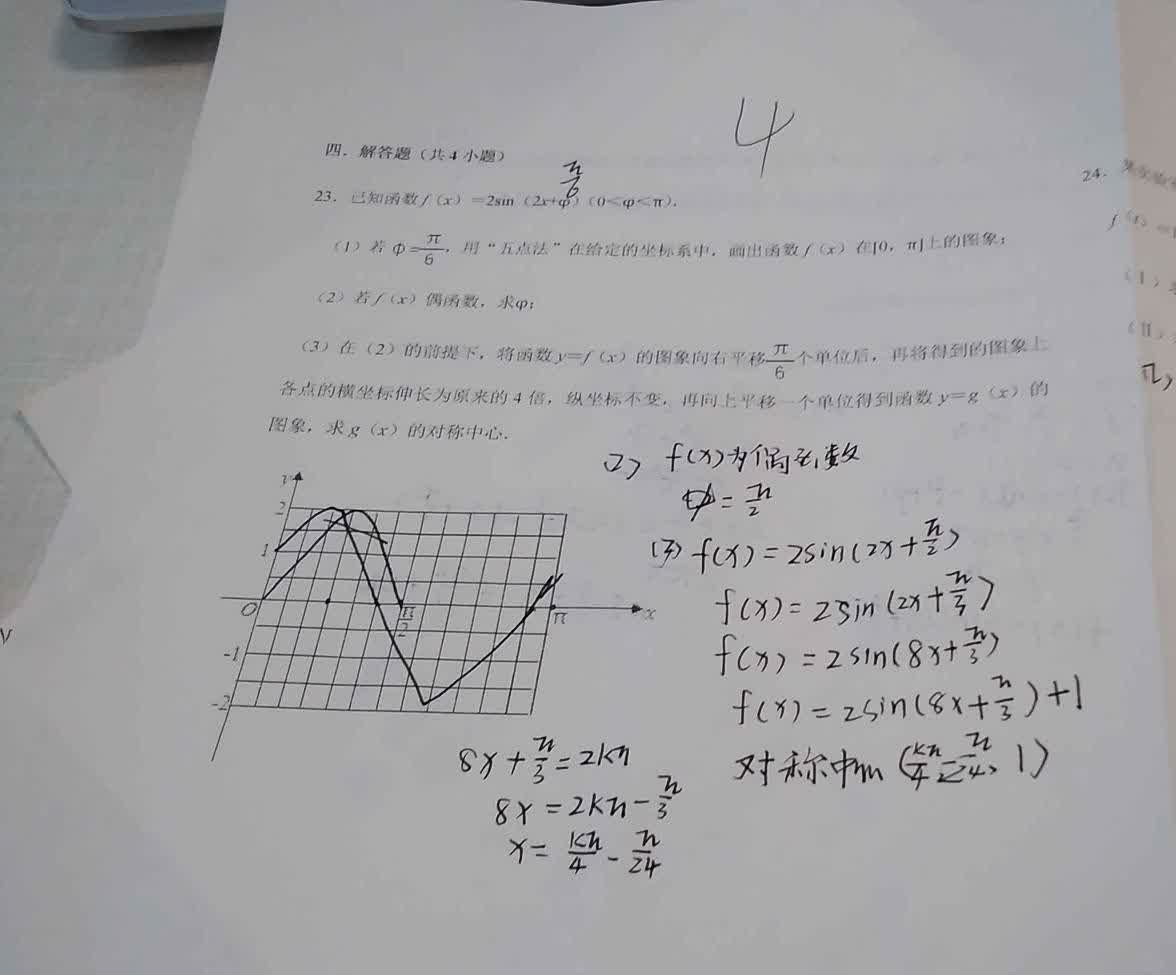 4
四．解答题（共4小题）
π/6
23．已知函数 f（x）=2sin（2x+φ）（0＜φ＜π）．
（1）若 φ=π/6，用“五点法”在给定的坐标系中，画出函数 f（x）在[0，π]上的图象；
（2）若 f（x）偶函数，求φ；
（3）在（2）的前提下，将函数 y=f（x）的图象向右平移π/6个单位后，再将得到的图象上
各点的横坐标伸长为原来的4倍，纵坐标不变，再向上平移一个单位得到函数 y=g（x）的
图象，求 g（x）的对称中心．
y
2
1
O
π/2
π
x
-1
-2
(2) f(x)为偶函数
φ = π/2
(3) f(x) = 2sin(2x + π/2)
f(x) = 2sin(2x + π/3)
f(x) = 2sin(8x + π/3)
f(x) = 2sin(8x + π/3) + 1
对称中心 (kπ/4 - π/24, 1)
8x + π/3 = 2kπ
8x = 2kπ - π/3
x = kπ/4 - π/24
24．